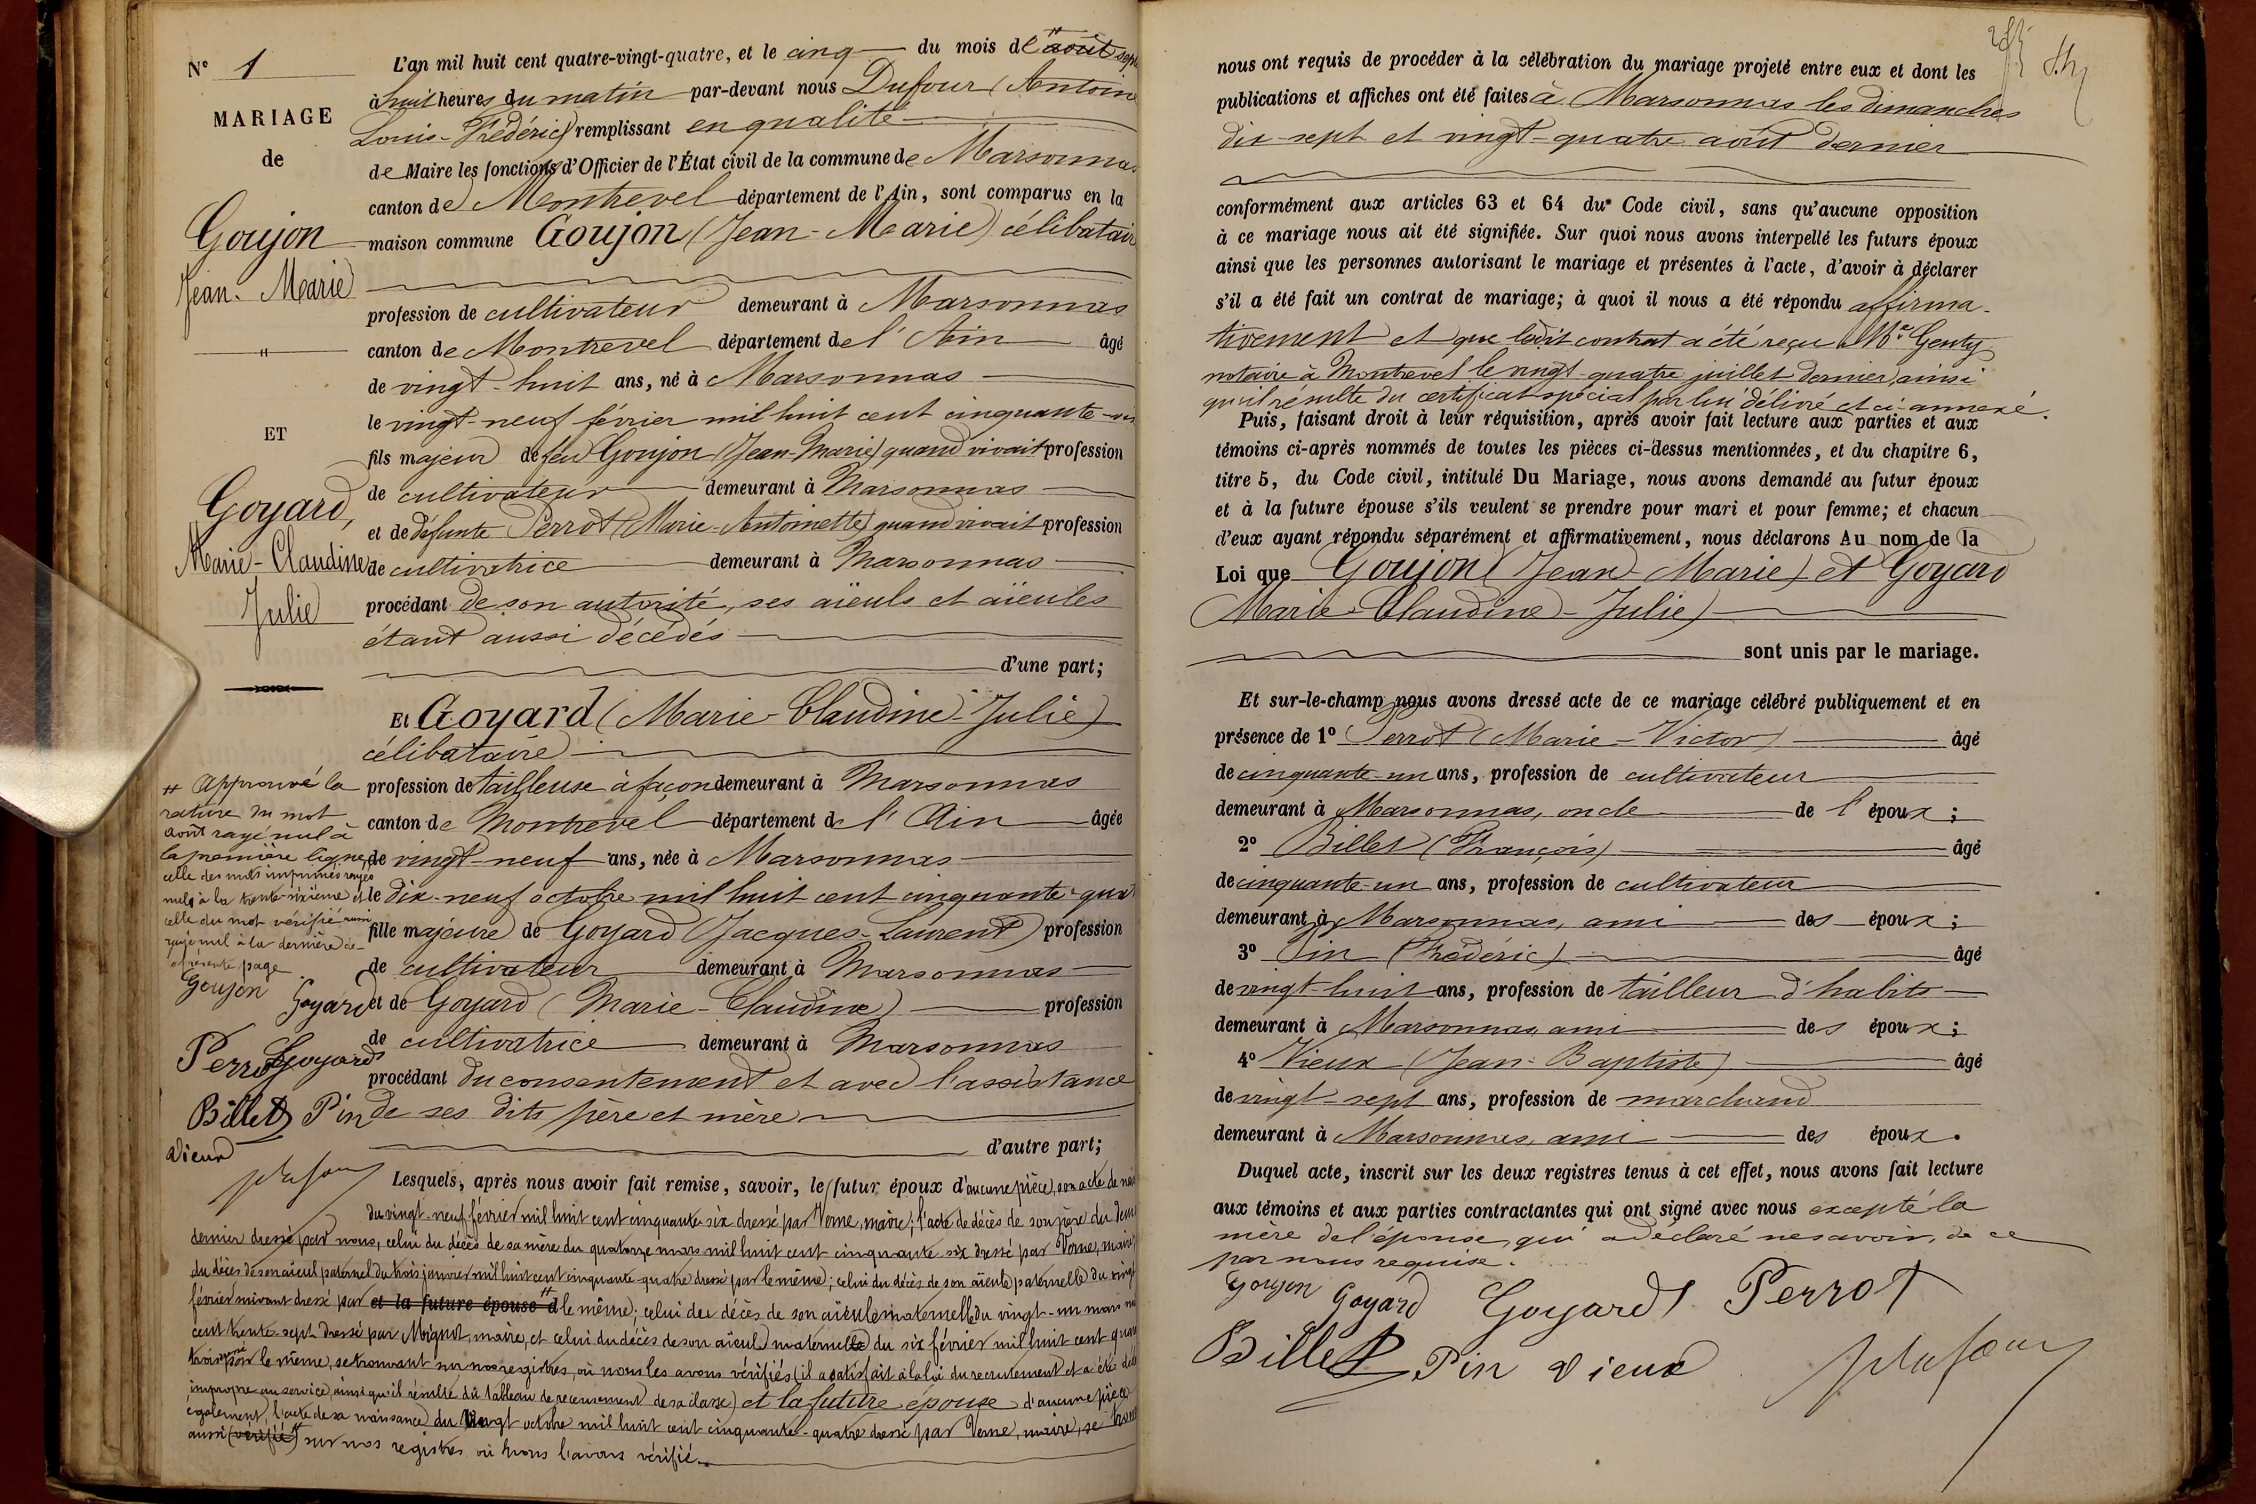 N° 1
MARIAGE
de
Goujon
Jean-Marie
ET
Goyard,
Marie-Claudine
Julie
# Approuvé la
rature du mot
août rayé nul à
la première ligne,
celle des mots imprimés rayés
nuls à la trente-sixième et
celle du mot vérifié aussi
rayé nul à la dernière de
présente page
Goujon Goyard
Perrot Goyard
Billet Pin
Vieux
L'an mil huit cent quatre-vingt-quatre, et le cinq du mois de août sept
à huit heures du matin par-devant nous Dufour (Antoine
Louis-Frédéric) remplissant en qualité
de Maire les fonctions d'Officier de l'État civil de la commune de Marsonnas
canton de Montrevel département de l'Ain, sont comparus en la
maison commune Goujon (Jean-Marie) célibataire
profession de cultivateur demeurant à Marsonnas
canton de Montrevel département de l'Ain âgé
de vingt-huit ans, né à Marsonnas
le vingt-neuf février mil huit cent cinquante-six
fils majeur de feu Goujon (Jean-Marie) quand vivait profession
de cultivateur demeurant à Marsonnas
et de défunte Perrot (Marie-Antoinette) quand vivait profession
de cultivatrice demeurant à Marsonnas
procédant de son autorité, ses aïeuls et aïeules
étant aussi décédés
d'une part;
Et Goyard (Marie-Claudine-Julie)
célibataire
profession de tailleuse à façon demeurant à Marsonnas
canton de Montrevel département de l'Ain âgée
de vingt-neuf ans, née à Marsonnas
le dix-neuf octobre mil huit cent cinquante-quat
fille majeure de Goyard (Jacques-Laurent) profession
de cultivateur demeurant à Marsonnas
et de Goyard (Marie-Claudine) profession
de cultivatrice demeurant à Marsonnas
procédant du consentement et avec l'assistance
de ses dits père et mère
d'autre part;
Lesquels, après nous avoir fait remise, savoir, le futur époux d'aucune pièce, son acte de nais
du vingt-neuf février mil huit cent cinquante-six dressé par Verne, maire; l'acte de décès de son père du
dernier dressé par nous, celui du décès de sa mère du quatorze mars mil huit cent cinquante-six dressé par Verne, maire,
du décès de son aïeul paternel du trois janvier mil huit cent cinquante-quatre dressé par le même; celui du décès de son aïeule paternelle du vingt
février suivant dressé par et la future épouse d le même; celui du décès de son aïeule maternelle du vingt-un mars
cent trente-sept dressé par Migniot, maire, et celui du décès de son aïeul maternel du six février mil huit cent quar
trois par le même, se trouvant sur nos registres, où nous les avons vérifiés (il a satisfait à la loi du recrutement et a été
impropre au service, ainsi qu'il résulte du tableau de recensement de sa classe) et la future épouse d'aucune pièce
également, l'acte de sa naissance du vingt octobre mil huit cent cinquante-quatre dressé par Verne, maire, se trouv
aussi (vérifié) sur nos registres où nous l'avons vérifié.
nous ont requis de procéder à la célébration du mariage projeté entre eux et dont les
publications et affiches ont été faites à Marsonnas les dimanches
dix-sept et vingt-quatre août dernier
conformément aux articles 63 et 64 du Code civil, sans qu'aucune opposition
à ce mariage nous ait été signifiée. Sur quoi nous avons interpellé les futurs époux
ainsi que les personnes autorisant le mariage et présentes à l'acte, d'avoir à déclarer
s'il a été fait un contrat de mariage; à quoi il nous a été répondu affirma-
tivement et que ledit contrat a été reçu Me Genty
notaire à Montrevel le vingt-quatre juillet dernier, ainsi
qu'il résulte du certificat spécial par lui délivré et ci-annexé.
Puis, faisant droit à leur réquisition, après avoir fait lecture aux parties et aux
témoins ci-après nommés de toutes les pièces ci-dessus mentionnées, et du chapitre 6,
titre 5, du Code civil, intitulé Du Mariage, nous avons demandé au futur époux
et à la future épouse s'ils veulent se prendre pour mari et pour femme; et chacun
d'eux ayant répondu séparément et affirmativement, nous déclarons Au nom de la
Loi que Goujon (Jean-Marie) et Goyard
Marie-Claudine-Julie)
sont unis par le mariage.
Et sur-le-champ nous avons dressé acte de ce mariage célébré publiquement et en
présence de 1° Perrot (Marie-Victor) âgé
de cinquante-un ans, profession de cultivateur
demeurant à Marsonnas, oncle de l'époux;
2° Billet (François) âgé
de cinquante-un ans, profession de cultivateur
demeurant à Marsonnas, ami des époux;
3° Pin (Frédéric) âgé
de vingt-huit ans, profession de tailleur d'habits
demeurant à Marsonnas, ami des époux;
4° Vieux (Jean-Baptiste) âgé
de vingt-sept ans, profession de marchand
demeurant à Marsonnas, ami des époux.
Duquel acte, inscrit sur les deux registres tenus à cet effet, nous avons fait lecture
aux témoins et aux parties contractantes qui ont signé avec nous excepté la
mère de l'épouse, qui a déclaré ne savoir, de ce
par nous requise.
Goujon Goyard Goyard Perrot
Billet Pin Vieux